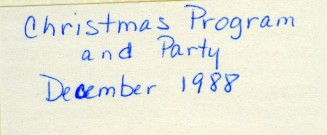 Christmas Program
and Party
December 1988